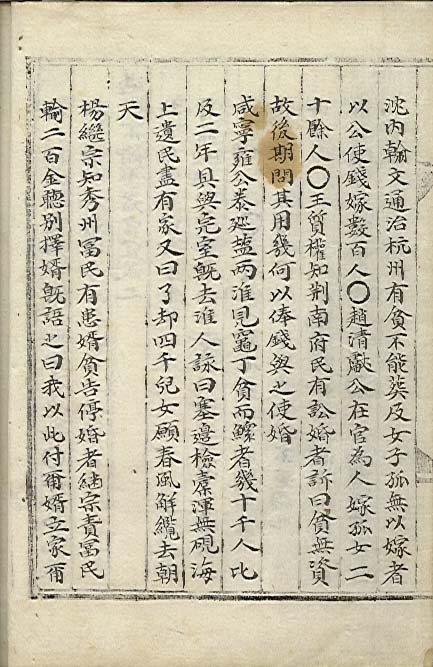 沈內翰文通治杭州有貧不能葬及女子孤無以嫁者
以公使錢嫁數百人○趙清獻公在官為人嫁孤女二
十餘人○王質權知荆南府民有訟婚者訴曰貧無資
故後期問其用幾何以俸錢與之使婚
咸寧雍公泰巡盐两淮見竈丁貧而鰥者幾十千人比
及二年具與完室旣去淮人詠曰塞邊檢橐渾無硯海
上遺民盡有家又曰了却四千兒女願春風解纜去朝
天
楊繼宗知秀州冨民有患婿貧告停婚者継宗責冨民
輸二百金聽別擇婿旣語之曰我以此付爾婿立家爾